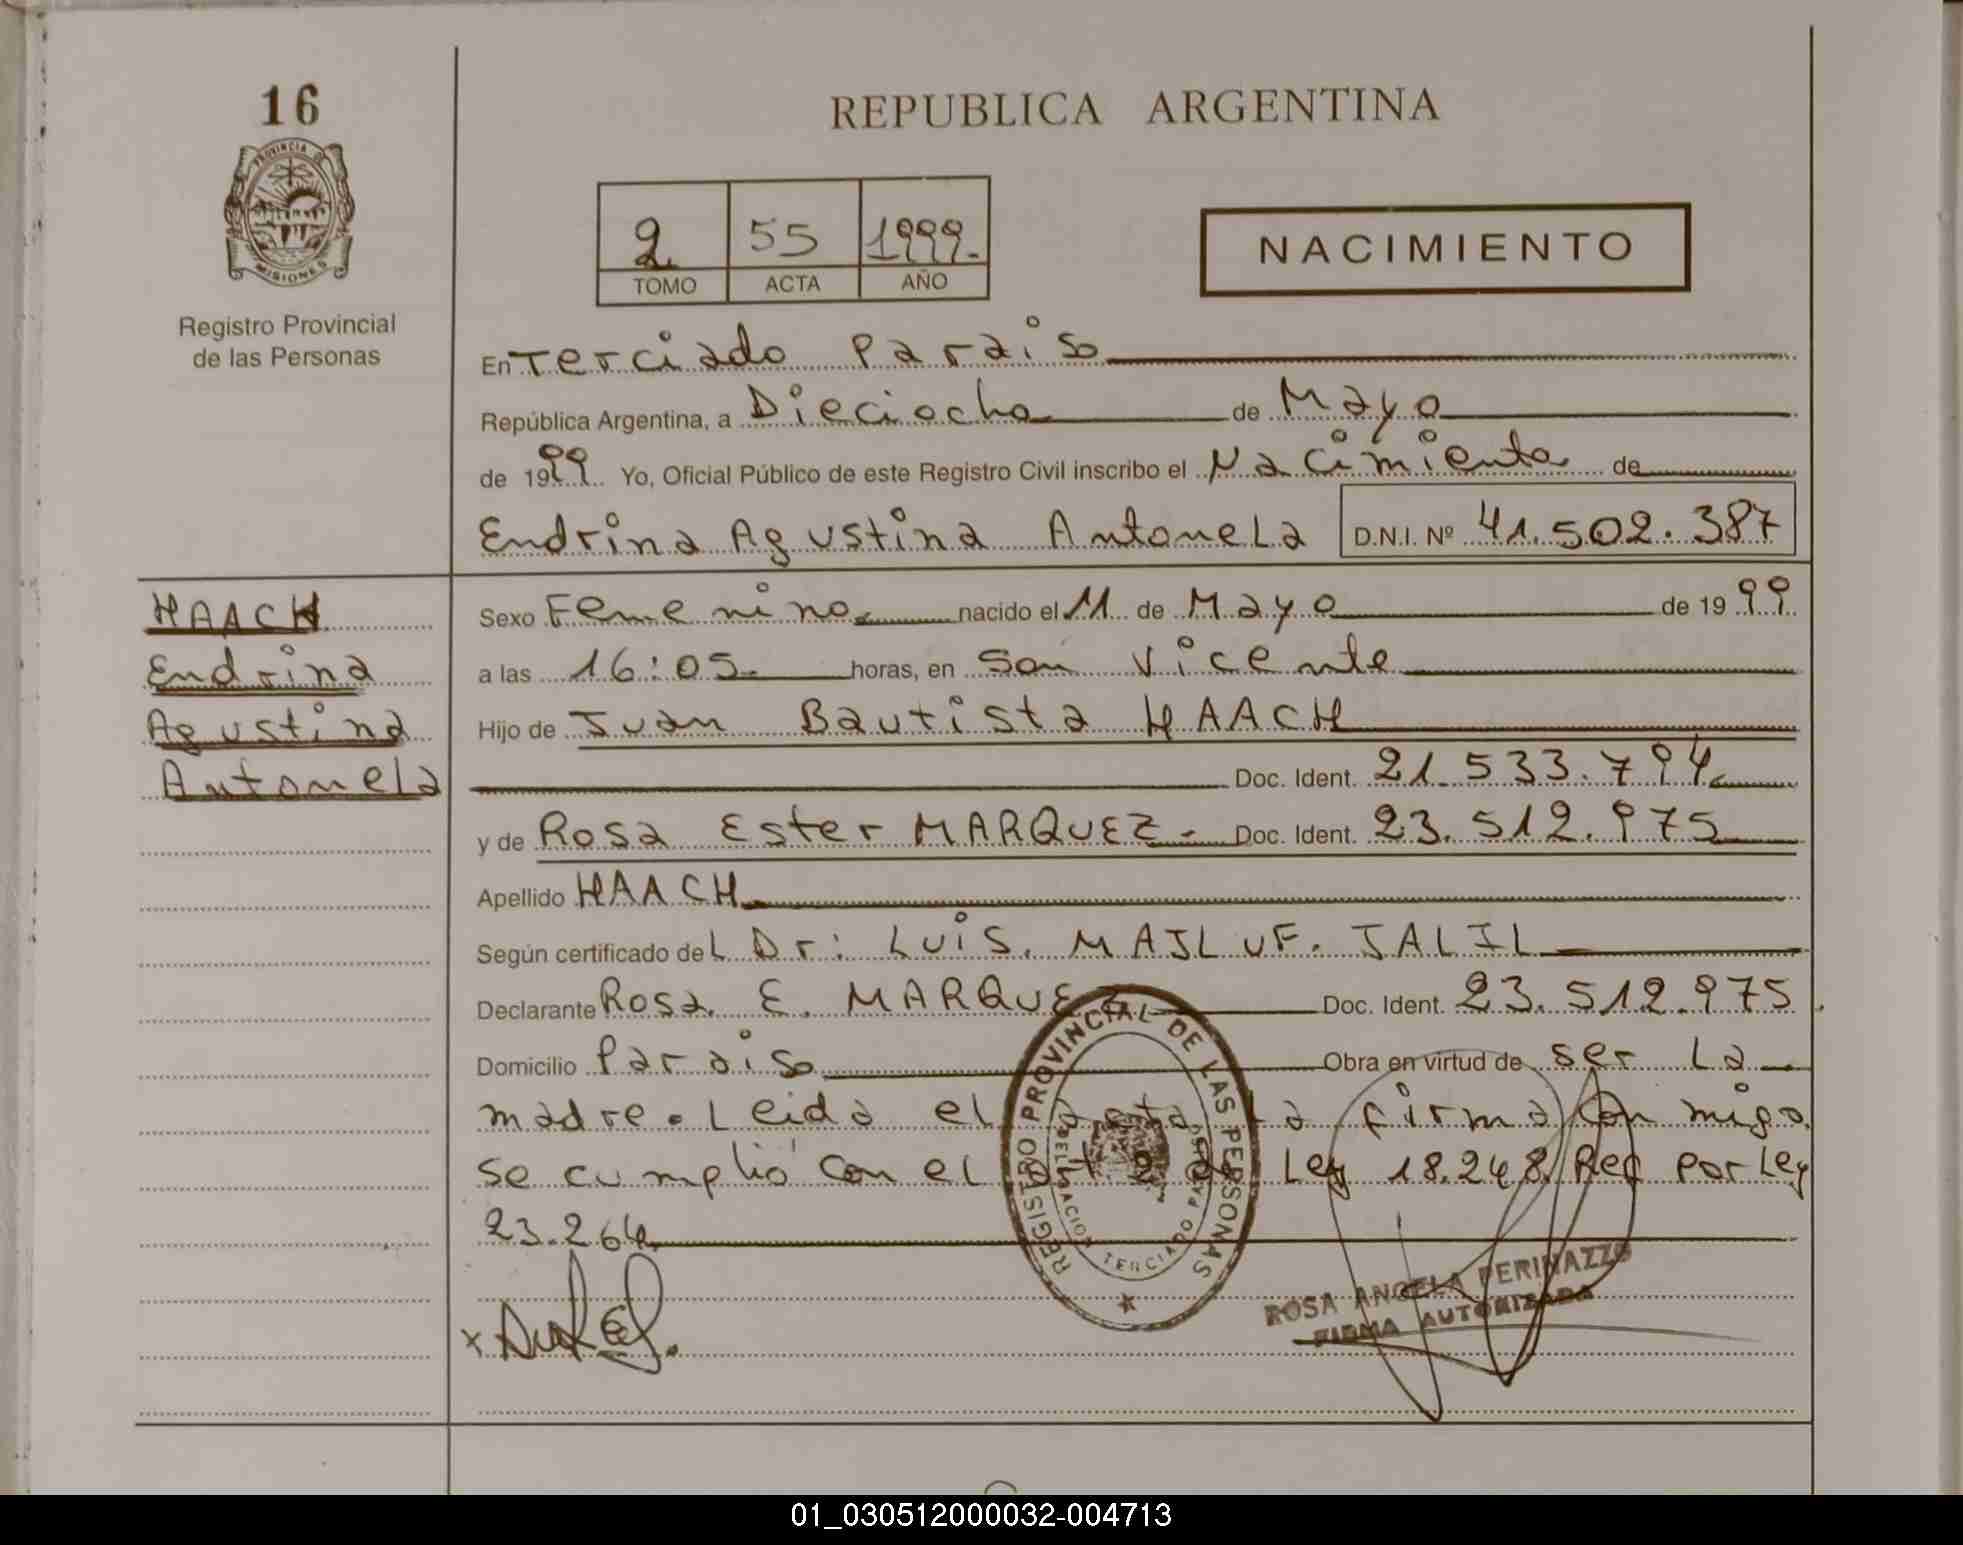 16
PROVINCIA DE
MISIONES
Registro Provincial
de las Personas
REPUBLICA ARGENTINA
2 55 1999.
TOMO ACTA AÑO
NACIMIENTO
En Terciado Paraiso
República Argentina, a Dieciocho de Mayo
de 1999 Yo, Oficial Público de este Registro Civil inscribo el Nacimiento de
Endrina Agustina Antonela D.N.I. Nº 41.502.387
HAACH
Endrina
Agustina
Antonela
Sexo Femenino. nacido el 11 de Mayo de 1999
a las 16:05. horas, en San Vicente
Hijo de Juan Bautista HAACH
Doc. Ident. 21.533.794.
y de Rosa Ester MARQUEZ.- Doc. Ident. 23.512.975
Apellido HAACH
Según certificado del Dr: Luis. MAJLUF. JALIL
Declarante Rosa. E. MARQUEZ Doc. Ident. 23.512.975.
Domicilio Paraiso Obra en virtud de ser La
madre. Leida el acta La firma con migo.
se cumplió con el art 2 de Ley 18.248. Req por Ley
23.264.
REGISTRO PROVINCIAL DE LAS PERSONAS
DELEGACION TERCIADO PARAISO
ROSA ANGELA PERINAZZO
FIRMA AUTORIZADA
01_030512000032-004713